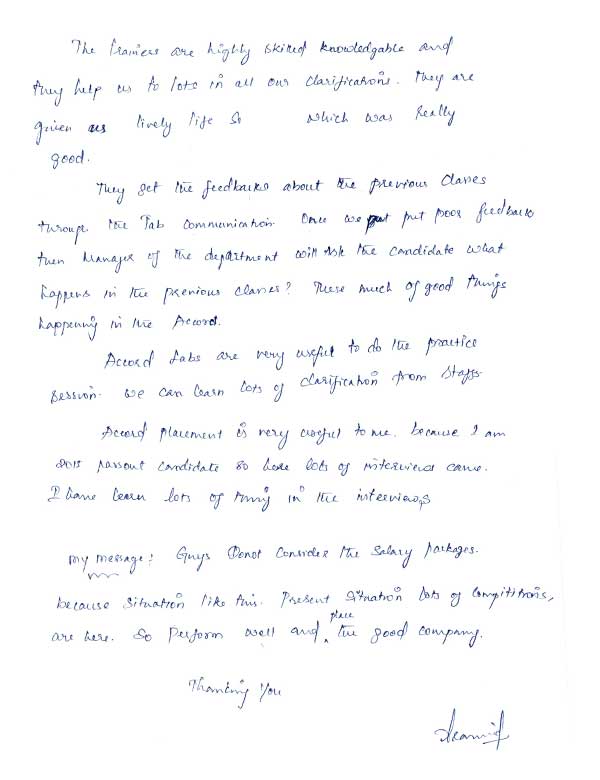 The trainers are highly skilled knowledgable and
they help us to lots in all our clarifications. They are
given us lively life so which was really
good.
They get the feedbacks about the previous classes
through the Tab communication. Once we put put poor feedback
then Manager of the department will ask the candidate what
happens in the previous classes? These much of good things
happening in the Accord.
Accord Labs are very useful to do the practice
session. we can learn lots of clarification from staffs.
Accord placement is very useful to me. because I am
2015 passout candidate so here lots of interviews came.
I have learn lots of thing in the interviews
my message: Guys Donot consider the salary packages.
because situation like this. Present situation lots of compititions,
are here. So perform well and place the good company.
Thanking You